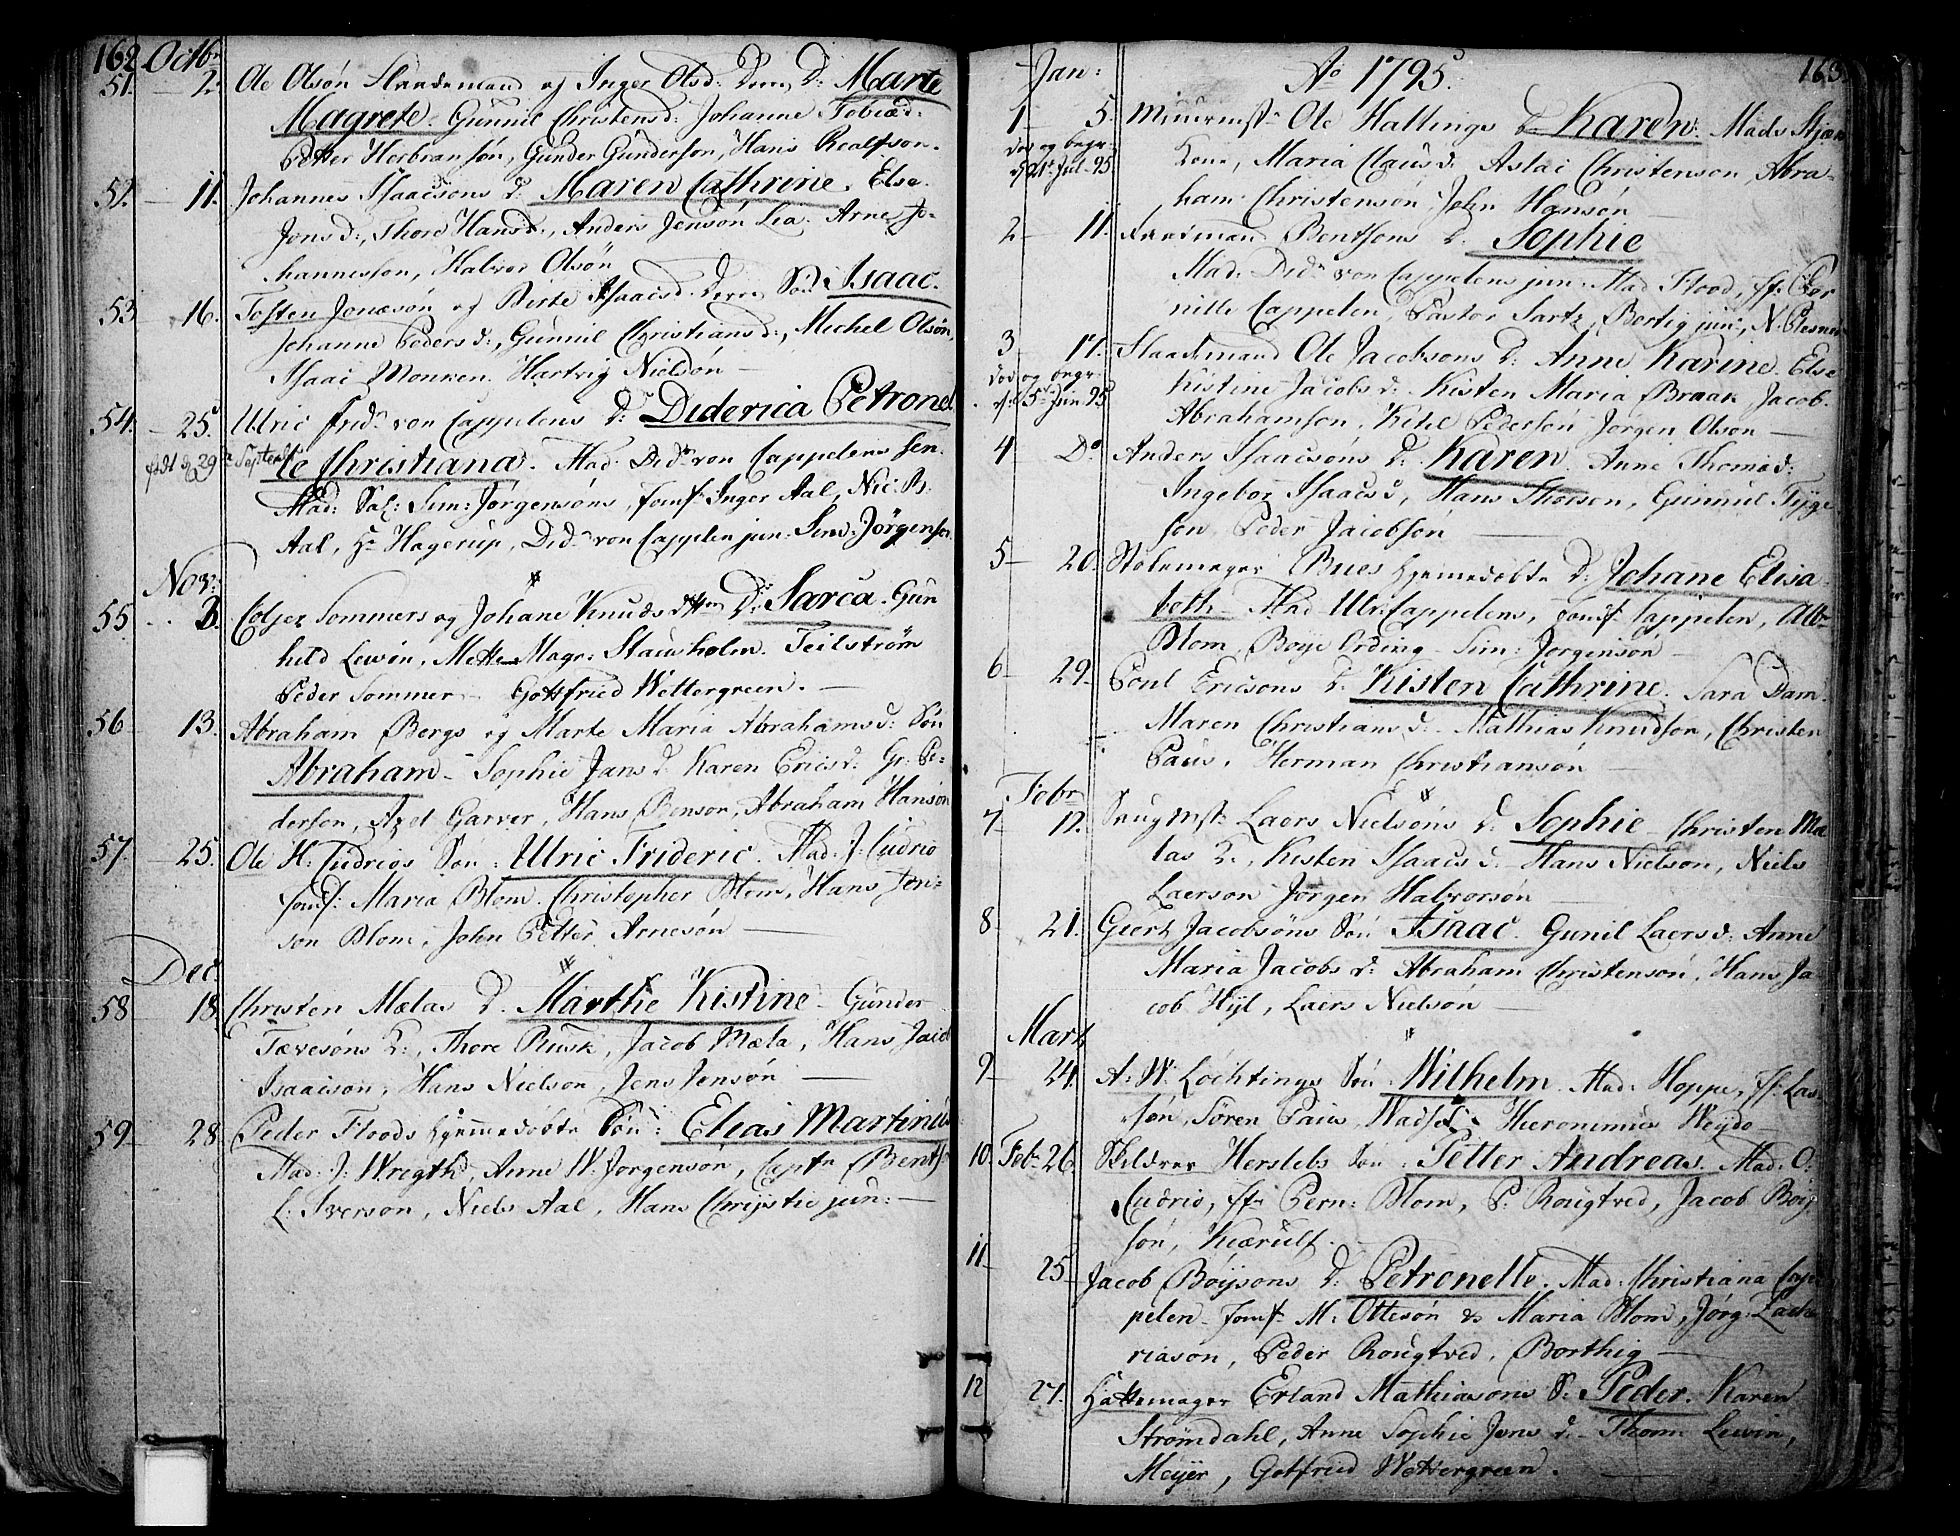 162 Octbr
51. 2. Ole Olsøn Slaademand og Inger Olsd: Dere D: Marte
Magrete. Gunnil Christensd: Johanne Tobiæd:
Petter Herbransøn, Gunder Gunderson, Hans Realfson.
52. 11. Johannes Isaacsons D: Maren Cathrine. Else
Jonsd:, Thore Hansd:, Anders Jensøn Lia. Arne Jo-
hannesson, Halvor Olsøn
53 16. Tosten Jonæsøn og Birte Isaacsd. Dere Søn Isaac.
Johanne Peders d:, Gunnil Christians d:, Michel Olsøn,
Isaac Monken. Hartvig Nielsøn
54. 25. Ulric Fridr von Cappelens D: Diderica Petronel
født d 29 Septembr le Christiana. Mad. Didr von Cappelen sen.
Mad: Sal: Sim: Jørgensøns, Jomf: Inger Aal, Nic: B:
Aal, Hr Hagerup, Did: von Cappelen jun: Sim: Jørgensen
Nov:
55 3. Coljer Sommers og Johane Knuds dtr D: Sarca. Gun
hild Lewin, Mette Magr: Stausholm. Teilstrøm
Peder Sommer - Gottfried Wettergreen.
56 13. Abraham Bergs og Marte Maria Abrahamsd: Søn
Abraham - Sophie Jans d. Karen Erics d: Gr: Pe-
dersen, Axel Garver, Hans Benson, Abraham Hanson
57. 25. Ole H: Cudrios Søn: Ulric Frideric. Mad: J: Cudrio
Jomf: Maria Blom. Christopher Blom, Hans Jen-
son Blom, John Petter Arnesøn
Dec
58 18. Christen Mælas D. Marthe Kistine - Gunder
Tævesøns K:, Thore Rusk, Jacob Mæla, Hans Jacob
Isaacson, Hans Nielson, Jens Jensøn
59 28. Peder Floods Hjemmedøbte Søn: Elias Martinus
Mad: J: Wregth, Anne W: Jorgensøn, Captn Bents
L: Iverson, Niels Aal, Hans Chrystie jun:
163
Jan: Ao 1795.
1 5. Minermstr Ole Hallings D Karen. Mads Stjæn
død og begr. Kone, Maria Clausd: Aslac Christenson, Abra-
d 21t Jul. 95 ham Christensøn John Hansøn
2 11. Bentsons D. Sophie
Mad. Didr von Cappelens jun. Mad Flood, Jf: Per
nille Cappelen, Pastor Sartz, Bertig jun:, N: Plesner
3 17. Slaademand Ole Jacobsons D: Anne Karine. Else
død og begr. Kistine Jacobs d: Kisten Maria Braak Jacob.
d: 5 Jun. 95 Abrahamson, Kitel Pedersøn Jørgen Olson
4 Do Anders Isaacsøns D. Karen. Anne Thomæd:
Ingebor Isaacs d, Hans Thorsen, Gunnul Tyge
sen, Peder Jacobsøn
5 20. Stolemager Bues Hjemmedøbte D: Johane Elisa
beth - Mad Ulr: Cappelens, Jomf: Cappelen, Albr
Blom, Boye Ording - Sim: Jorgensøn
6 29. Poul Ericsons D. Kisten Cathrine. Sara Dam.
Maren Christians d. Mathias Knudson, Christen
Paus, Herman Christiansøn
Febr
7 12. Saugmstr Laers Nielsøns D. Sophie - Christen Mæ
las K., Kisten Isaacs d - Hans Nielson, Niels
Laerson Jørgen Halvorsøn
8 21. Giert Jacobsøns Søn Isaac. Gunil Laersd: Anne
Maria Jacobs d: Abraham Christensøn, Hans Ja-
cob Hyl, Laers Nielsøn
Marts
9 24. A: W: Løchtings Søn Wilhelm. Mad: Hoppe, Jf: Las-
søn, Søren Paus, Hieronimus Heyde
10 Feb: 26. Skildrer Herslebs Søn: Petter Andreas. Mad: O:
Cudrio, Jf: Pern: Blom, P: Rougtved, Jacob Bøy
søn, Kiærulf.
11 25. Jacob Bøysons D: Petronelle. Mad: Christiana Cap-
pelen - Jomf: M: Ottesøn & Maria Blom, Jørg: Zacha
riason, Peder Rougtved, Borthig
12 27. Hattemager Erland Mathiasons S: Peder. Karen
Strømdahl, Anne Sophie Jens d - Thom Lewin,
Meyer, Gotfried Wettergreen.